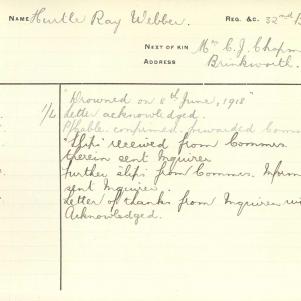 NAME Hurtle Ray Webber. REG. &C. 32nd B
NEXT OF KIN Mrs C. J. Chapm
ADDRESS Brinkworth.
"Drowned on 8th June, 1918"
1/L Letter acknowledged.
confirmed, forwarded Comm
"Slip" received from Commrs.
therein sent Inquirer
Further slips from Commrs. Inform
sent Inquirer.
Letter of thanks from Inquirer
Acknowledged.